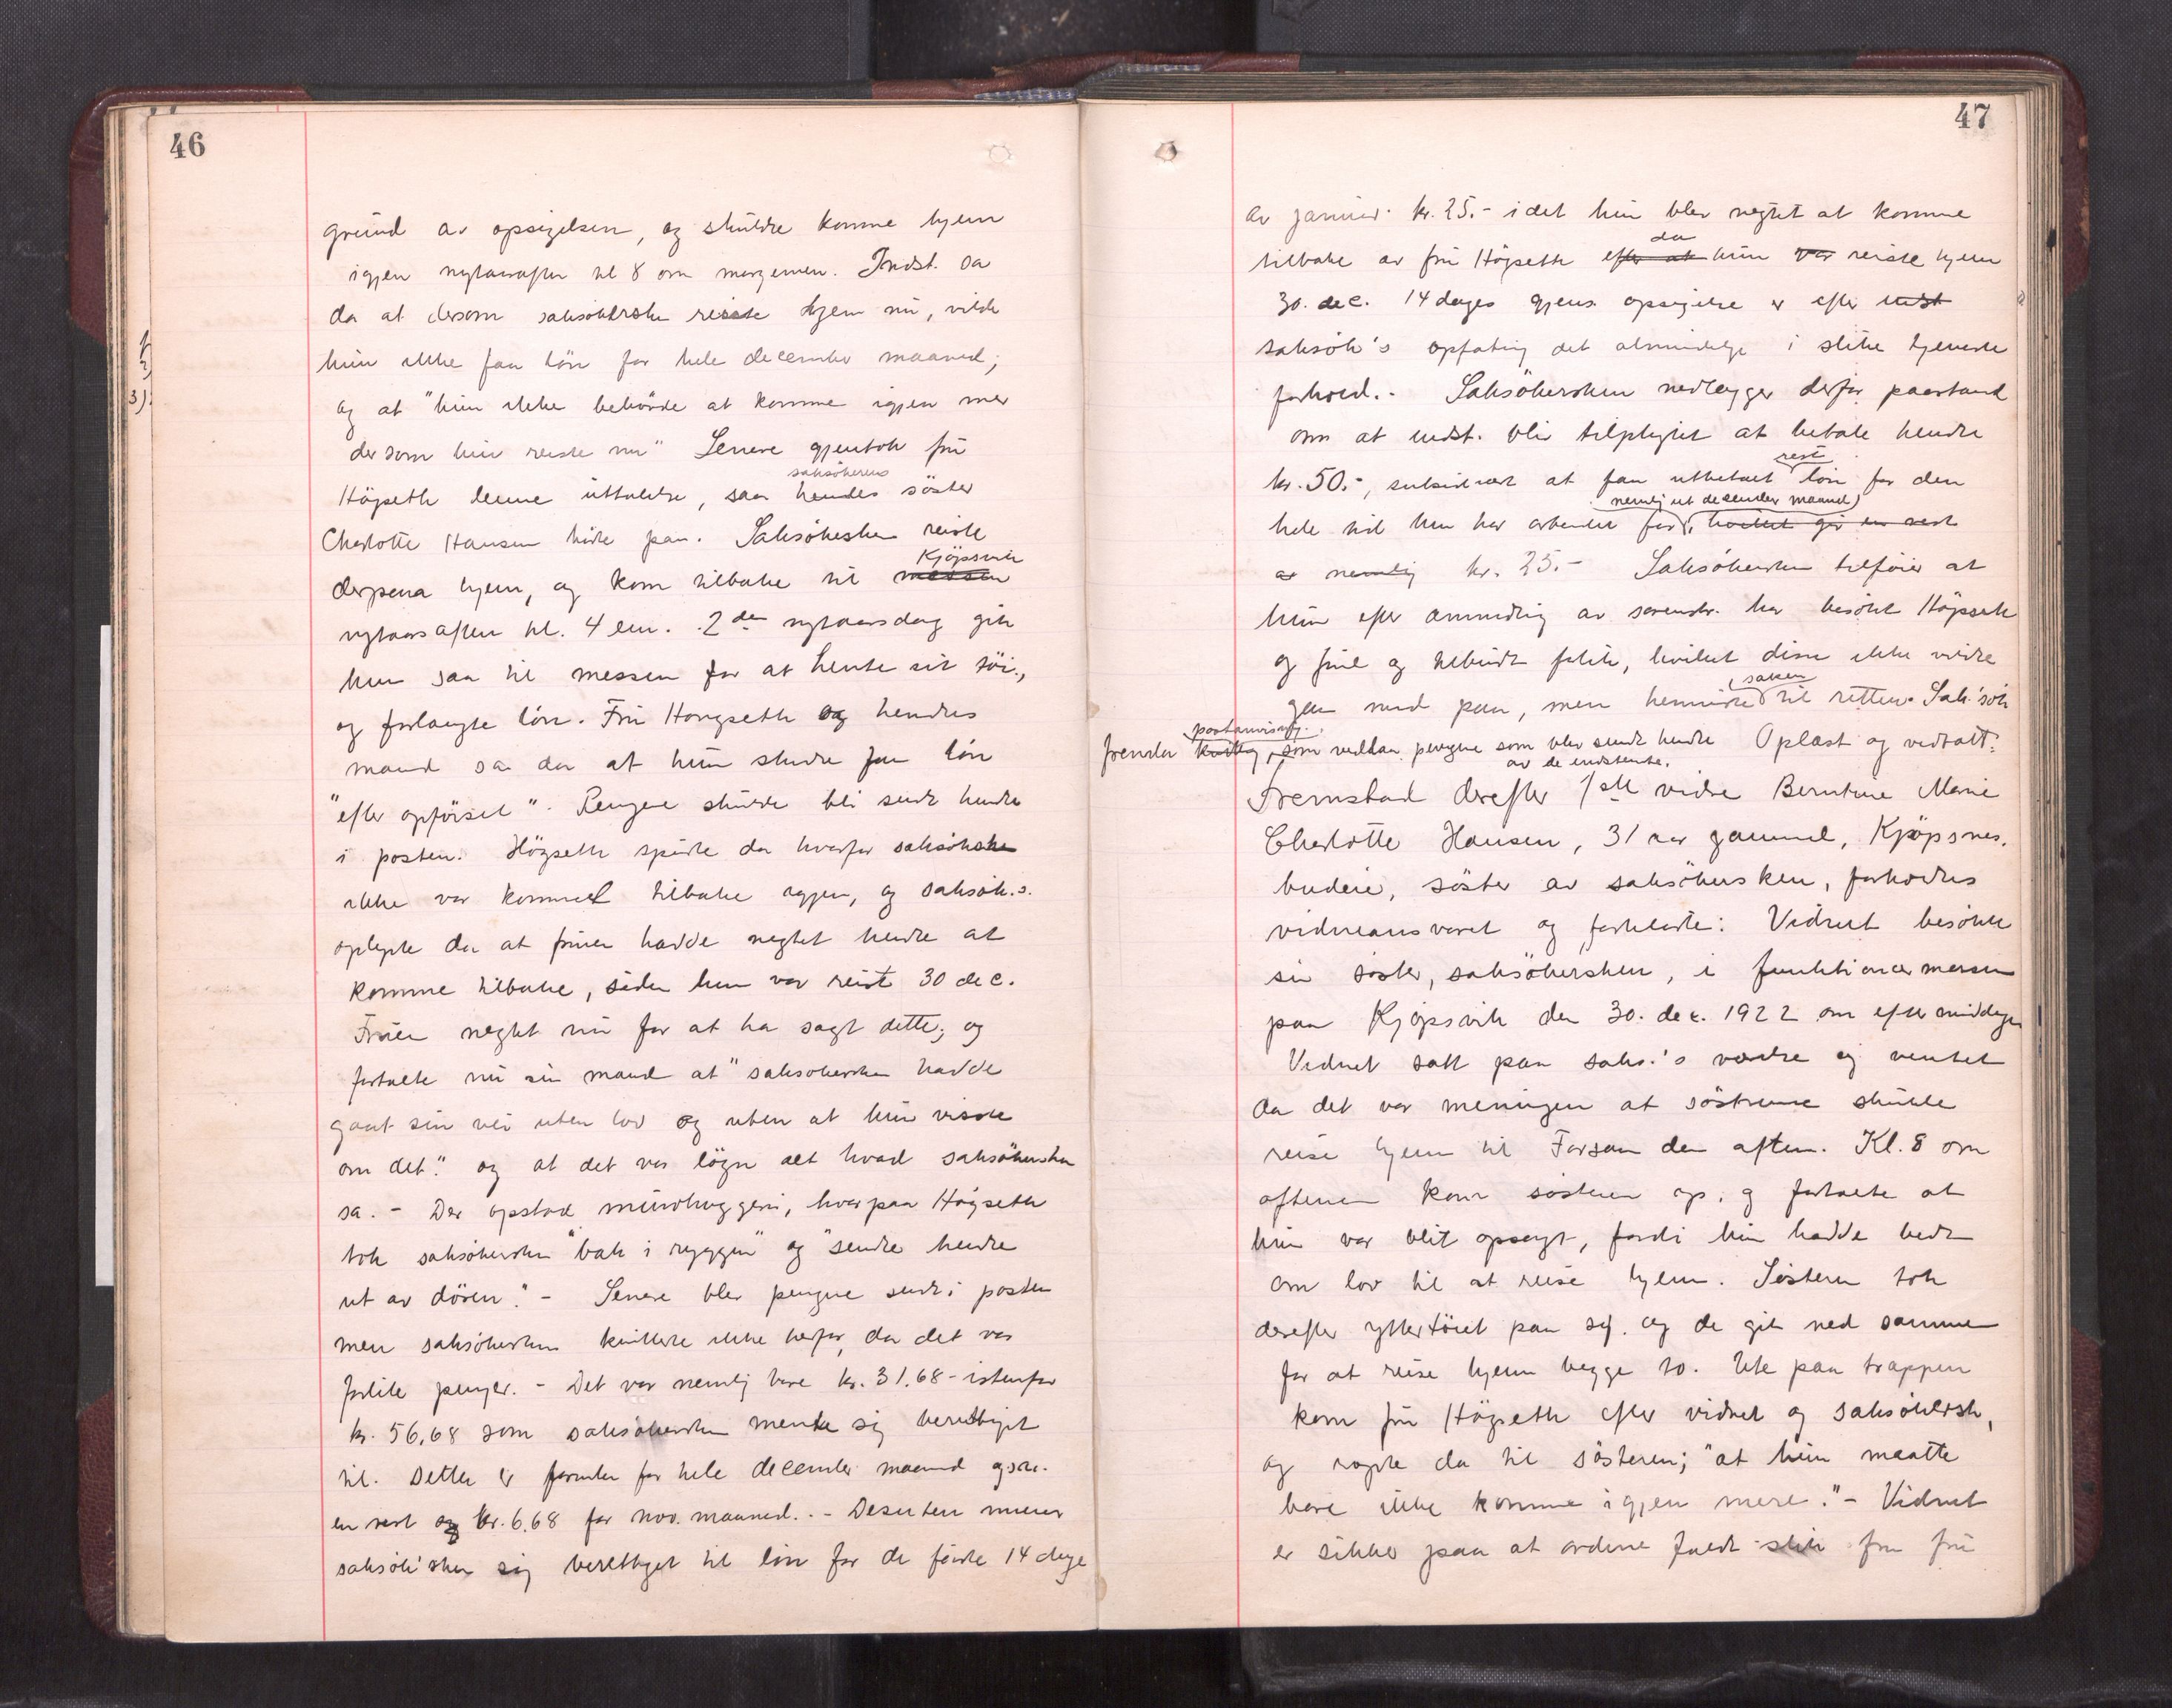 46
grund av opsigelsen, og skulde komme hjem
igjen nytaarsaften kl 8 om morgenen. Indst. sa
da at dersom saksökersken reiste hjem nu, vilde
hun ikke faa lön for hele december maaned;
og at "hun ikke behövde at komme igjen mer
dersom hun reiste nu" Senere gjentok fru
saksökerens
Högseth denne uttalelse, saa hendes söster
Charlotte Hansen hörte paa. Saksökersken reiste
Kjöpsvik
derpaa hjem, og kom tilbake til messen
nytaarsaften kl. 4 em. 2den nytaarsdag gik
hun saa til messen for at hente sit töi,
og forlangte lön. Fru Hongseth og hendes
mand sa da at hun skulde faa lön
"efter opförsel". Pengene skulde bli sendt hende
i posten. Högseth spurte da hvorfor saksökske
ikke var kommet tilbake igjen, og saksök.s.
oplyste da at fruen hadde negtet hende at
komme tilbake, siden hun var reist 30 dec.
Fruen negtet nu for at ha sagt dette, og
fortalte nu sin mand at "saksökersken hadde
gaat sin vei uten lov og uten at hun visste
om det." og at det var lögn alt hvad saksökersken
sa. - Der opstod mundhuggeri, hvorpaa Högseth
tok saksökersken "bak i ryggen" og "sendte hende
ut av dören." - Senere blev pengene sendt i posten
men saksökersken kvitterte ikke herfor, da det var
forlite penger. - Det var nemlig bare kr. 31.68 - istenfor
kr. 56,68 som saksökersken mente sig berettiget
til. Dette er for hele december maaned
en rest og kr. 6.68 for nov. maaned. - Desuten mener
saksök'sken sig berettiget til lön for de förste 14 dage
47
av januar. kr. 25.- idet hun blev negtet at komme
da
tilbake av fru Högseth efter at hun var reiste hjem
30. dec. 14 dages gjens. opsigelse er efter indst
saksök's opfating det almindelige i slike tjeneste
forhold. - Saksökersken nedlægger derfor paastand
om at indst. blir tilpligtet at betale hende
rest
kr. 50.-, subsidiært at faa utbetalt lön for den
nemlig ut desember maaned)
hele tid hun har arbeidet for, hvilket gir en rest
av nemlig kr. 25.- Saksökersken tilföier at
hun efter anmodning av sorenskr. har besökt Högseth
og frue og tilbudt forlik, hvilket disse ikke vilde
saken
gaa med paa, men henviste til retten. Sak'sök
postanvisning.
fremla kvittg, som vedkar pengene som blev sendt hende Oplæst og vedtatt.
av de indstevnte.
Fremstod derefter 1ste vidne Berntine Marie
Charlotte Hansen, 31 aar gammel, Kjöpsnes.
budeie, söster av saksökersken, forholdtes
vidneansvaret og forklarte: Vidnet besökte
sin söster, saksökersken, i funktionærmessen
paa Kjöpsvik den 30. dec. 1922 om eftermiddagen
Vidnet satt paa saks.'s værelse og ventet
da det var meningen at söstrene skulde
reise hjem til Forsan den aften. Kl. 8 om
aftenen kom sösteren op. og fortalte at
hun var blit opsagt, fordi hun hadde bedt
om lov til at reise hjem. Sösteren tok
derefter yttertöiet paa sig. og de gik ned sammen
for at reise hjem begge to. Ute paa trappen
kom fru Högseth efter vidnet og saksökersk,
og ropte da til sösteren; "at hun maatte
bare ikke komme igjen mere." - Vidnet
er sikker paa at ordene faldt slik fra fru